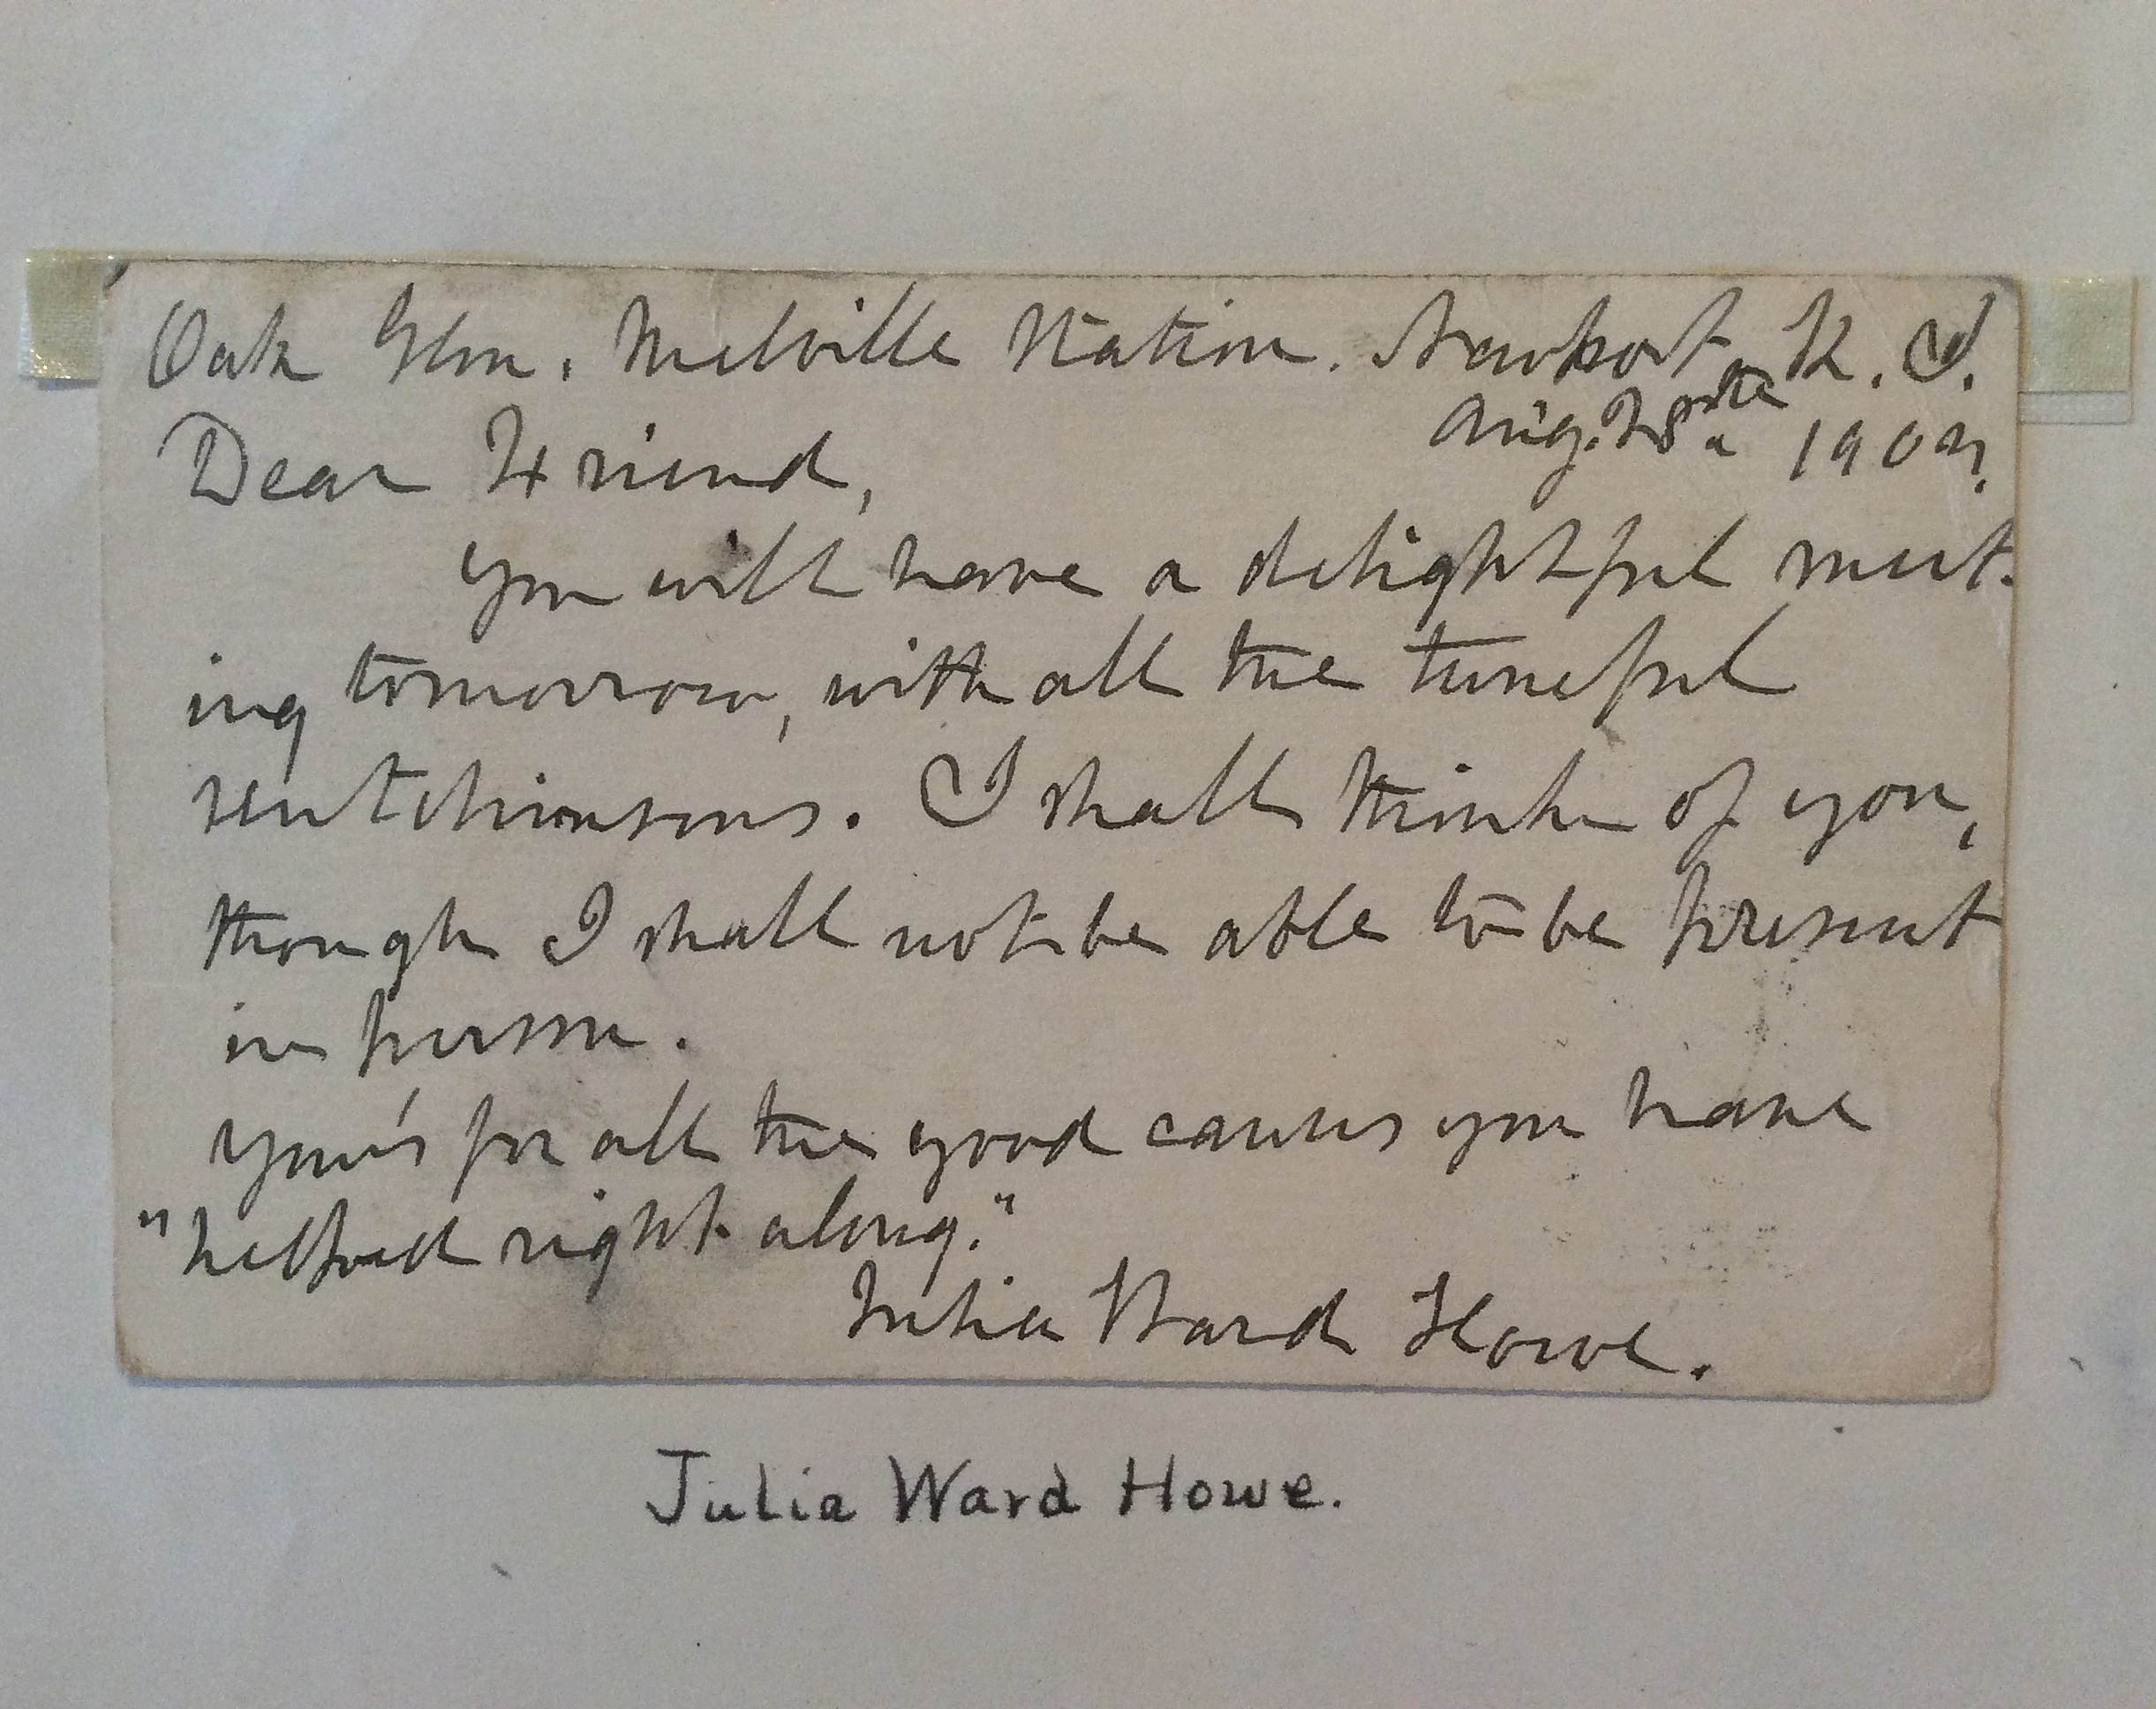 Oak Glen. Melville Station. Newport, R. I.
Aug. 28th 1902.
Dear Friend,
you will have a delightful meet-
ing tomorrow, with all the tuneful
Hutchinsons. I shall think of you,
though I shall not be able to be present
in person.
Your's for all the good causes you have
"helped right along."
Julia Ward Howe.
Julia Ward Howe.